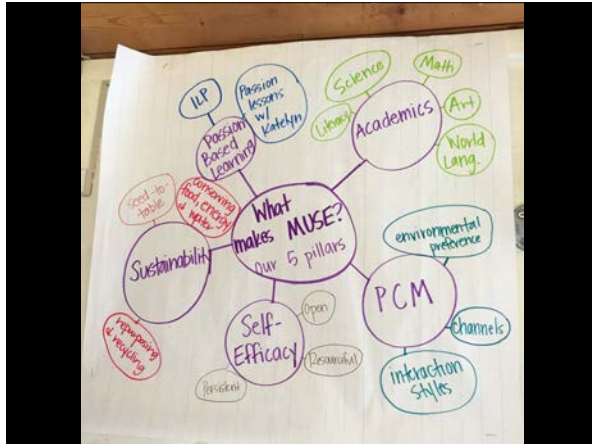 What
makes MUSE?
our 5 pillars
Passion
Based
Learning
ILP
Passion
lessons
w/
Katelyn
Academics
Literacy
Science
Math
Art
World
Lang.
PCM
environmental
preference
channels
interaction
styles
Self-
Efficacy
Open
Resourceful
Persistent
Sustainability
seed-to-
table
conserving
food, energy
& water
repurposing
& recycling